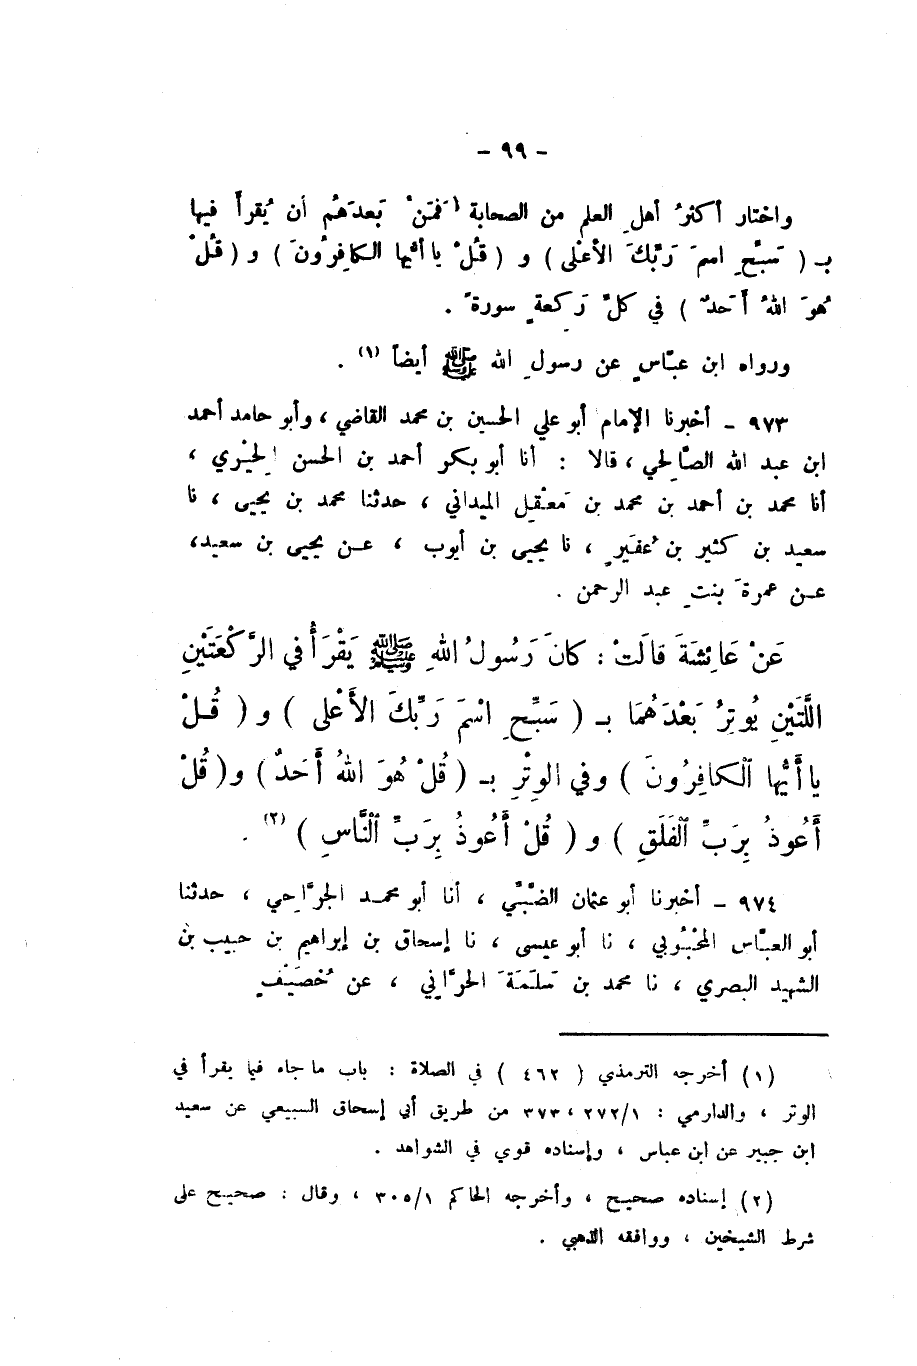 - ٩٩ -
واختار أكثرُ أهلِ العلم من الصحابة فَمَنْ بَعدَهُم أن يُقرأ فيها
بـ ( سَبِّحِ اسمَ رَبِّكَ الأعْلى ) و ( قُلْ يا أيُّها الكافِرُونَ ) و ( قُلْ
هُوَ اللهُ أَحَدٌ ) في كلِّ رَكعةٍ سورةً .
ورواه ابن عبّاسٍ عن رسولِ الله ﷺ أيضاً (١) .
٩٧٣ - أخبرنا الإمام أبو علي الحسين بن محمد القاضي ، وأبو حامد أحمد
ابن عبد الله الصّالِحي ، قالا : أنا أبو بكر أحمد بن الحسن الحِيْري ،
أنا محمد بن أحمد بن محمد بن مَعقِل الميداني ، حدثنا محمد بن يحيى ، نا
سعيد بن كثير بن عُفَيرٍ ، نا يحيى بن أيوب ، عـن يحيى بن سعيد،
عـن عمرةَ بنتِ عبد الرحمن .
عَنْ عَائِشَةَ قالَتْ : كانَ رَسُولُ اللهِ ﷺ يَقْرَأُ في الرَّكْعَتَيْنِ
اللَّتَيْنِ يُوتِرُ بَعْدَهُمَا بـ ( سَبِّحِ اسْمَ رَبِّكَ الأَعْلى ) و ( قُـلْ
يا أَيُّها ٱلكافِرُونَ ) وفي الوِتْرِ بـ ( قُلْ هُوَ اللهُ أَحَدٌ ) و ( قُلْ
أَعُوذُ بِرَبِّ ٱلفَلَقِ ) و ( قُلْ أَعُوذُ بِرَبِّ ٱلنَّاسِ ) (٢) .
٩٧٤ - أخبرنا أبو عثمان الضبِّي ، أنا أبو محمـد الجرَّاحي ، حدثنا
أبو العبّاس المحْبُوبي ، نا أبو عيسى ، نا إسحاق بن إبراهيم بن حبيب بن
الشهيد البصري ، نا محمد بن سَلَمَةَ الحرَّاني ، عن خُصَيْفٍ
(١) أخرجه الترمذي ( ٤٦٢ ) في الصلاة : باب ما جاء فيما يقرأ في
الوتر ، والدارمي : ٢٧٢/١ ، ٣٧٣ من طريق أبي إسحاق السبيعي عن سعيد
ابن جبير عن ابن عباس ، وإسناده قوي في الشواهد .
(٢) إسناده صحيح ، وأخرجه الحاكم ٣٠٥/١ ، وقال : صحيح على
شرط الشيخين ، ووافقه الذهبي .